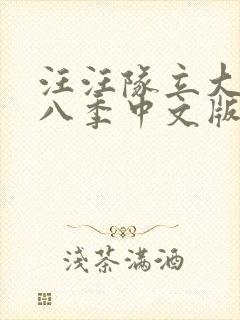 汪汪隊立大
八季中文版
淺茶满酒